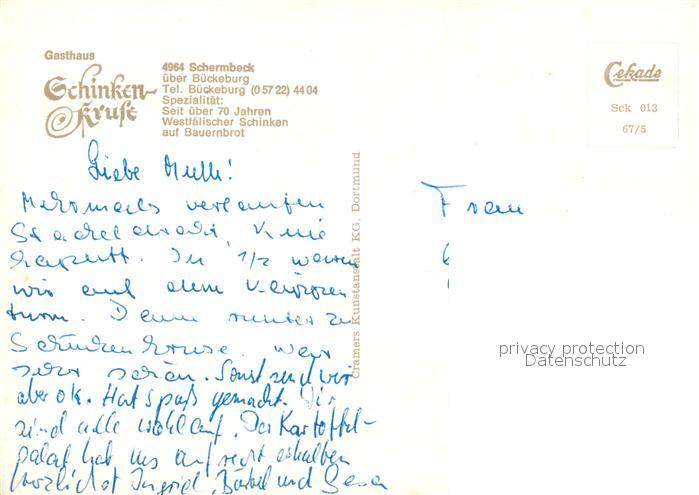 Gasthaus
Schinken-
Kruse
4964 Schermbeck
über Bückeburg
Tel. Bückeburg (0 57 22) 44 04
Spezialität:
Seit über 70 Jahren
Westfälischer Schinken
auf Bauernbrot
Cekade
Sck 013
67/5
Cramers Kunstanstalt KG. Dortmund
Liebe
Mehrmals verlaufen
Stacheldraht, Knie
kaputt. In 1/2 waren
wir auf dem
turm. Dann runter zu
Schinkenkruse. War
sehr schön. Sonst sind wir
aber ok. Hat spaß gemacht. Wir
sind alle wohlauf. Der Kartoffel-
salat hat uns aufrecht erhalten
herzlichst Ingrid, Bärbel und
Frau
privacy protection
Datenschutz